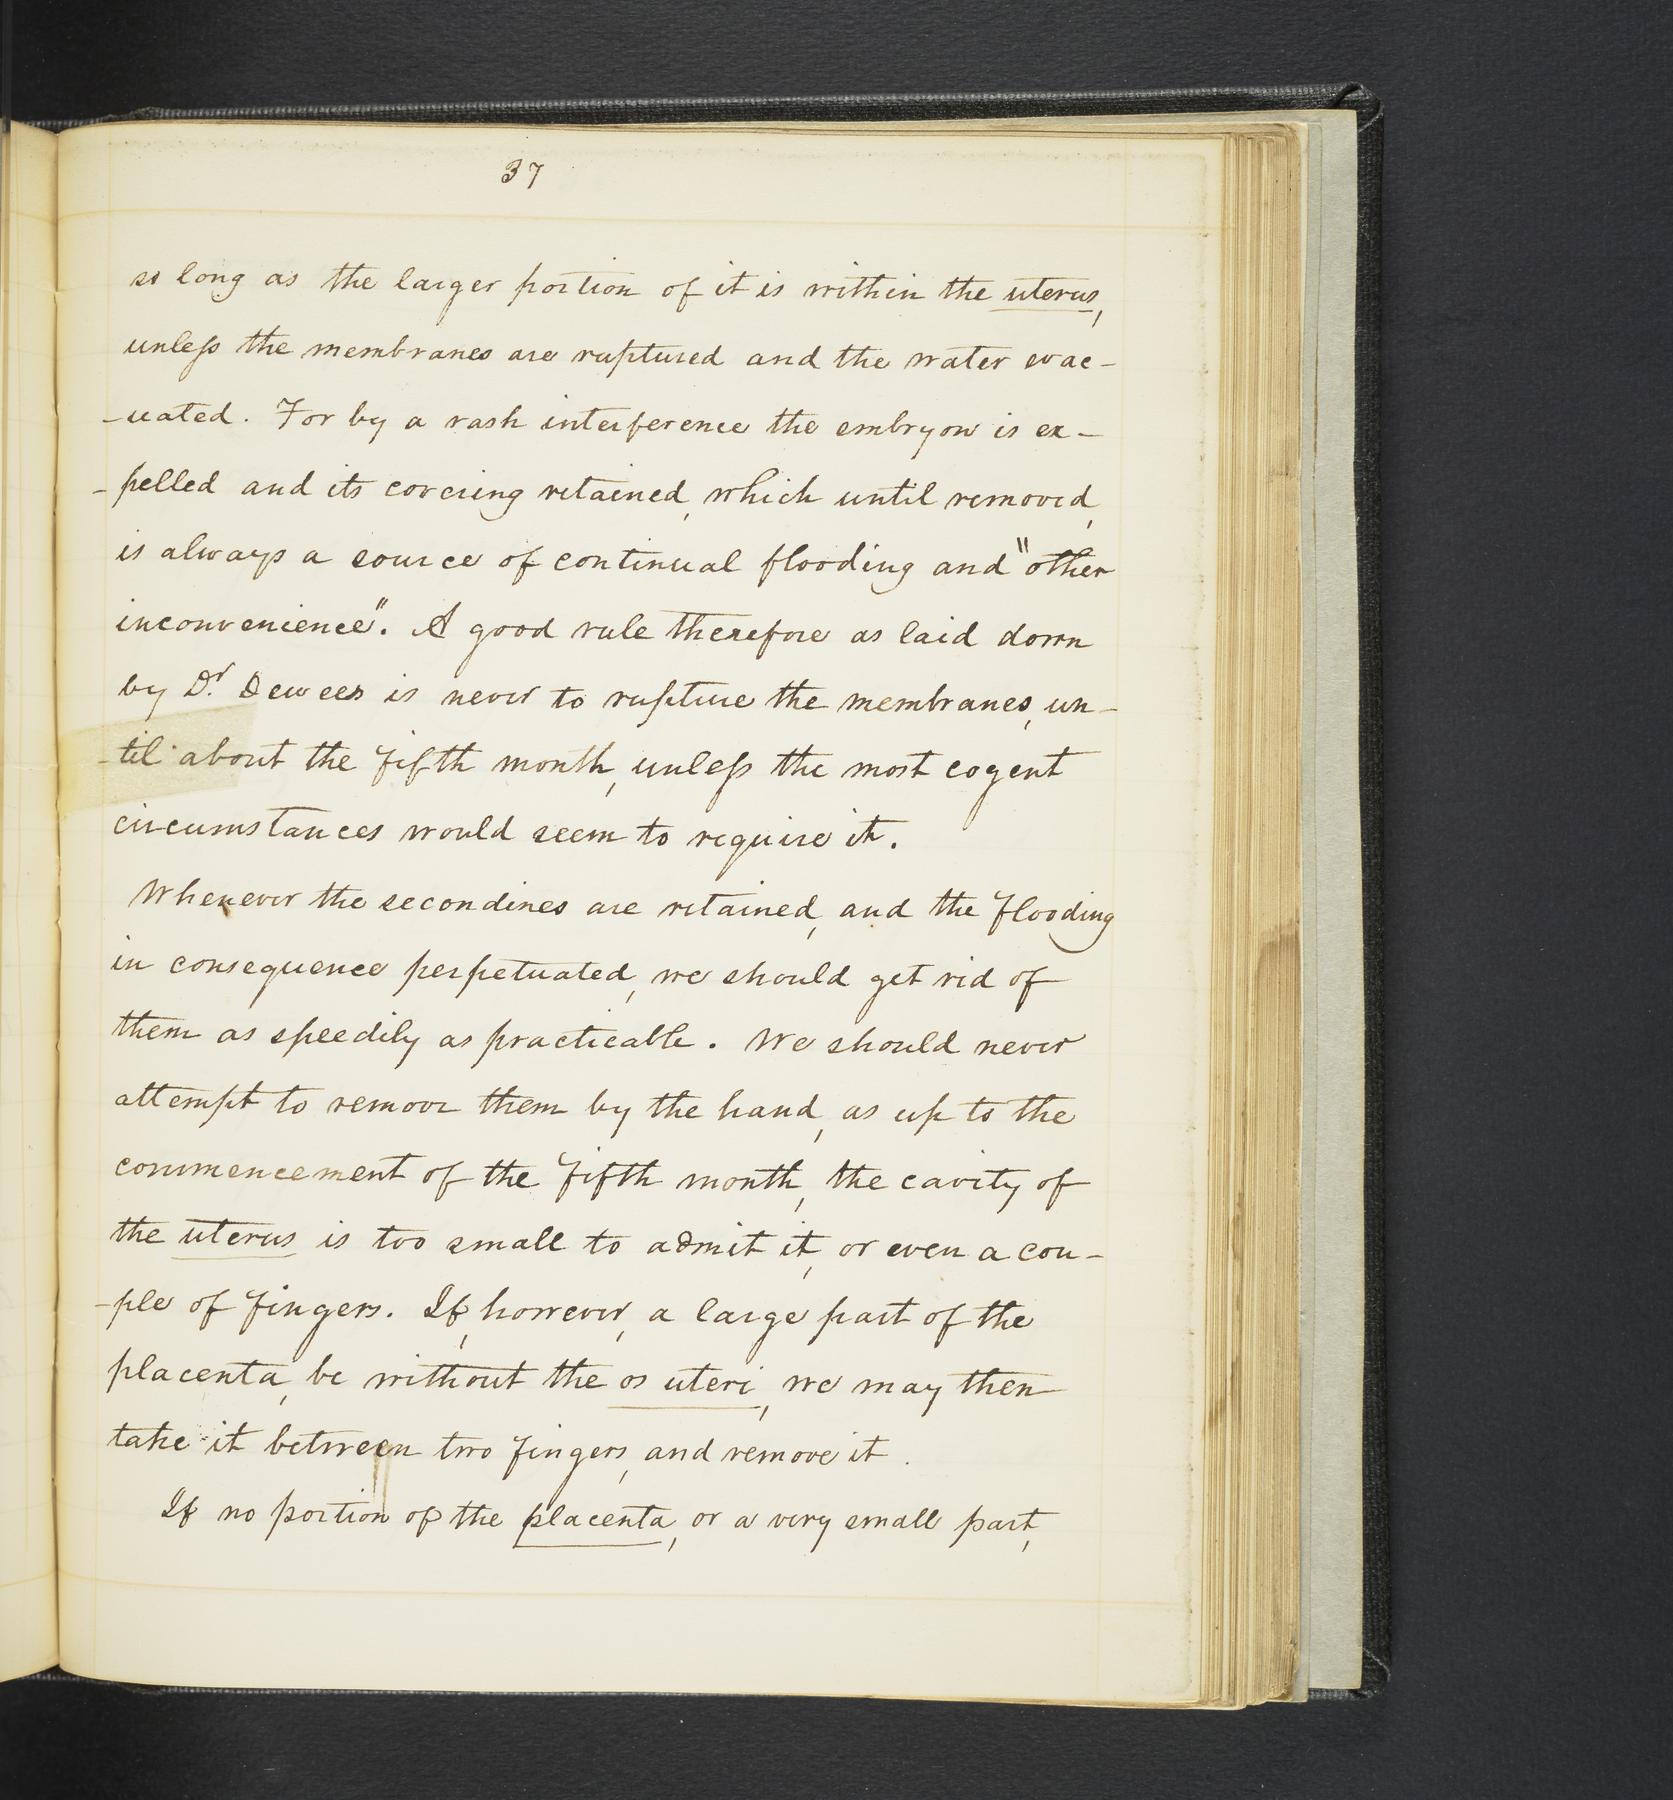 37
so long as the larger portion of it is within the uterus,
unless the membranes are ruptured and the water evac-
-uated. For by a rash interference the embryon is ex-
-pelled and its covering retained, which until removed,
is always a source of continual flooding and "other
inconvenience". A good rule therefore as laid down
by Dr. Dewees is never to rupture the membranes, un-
-til about the fifth month, unless the most cogent
circumstances would seem to require it.
Whenever the secondines are retained, and the flooding
in consequence perpetuated, we should get rid of
them as speedily as practicable. We should never
attempt to remove them by the hand, as up to the
commencement of the fifth month, the cavity of
the uterus is too small to admit it, or even a cou-
-ple of fingers. If, however, a large part of the
placenta, be without the os uteri, we may then
take it between two fingers, and remove it.
If no portion of the placenta, or a very small part,